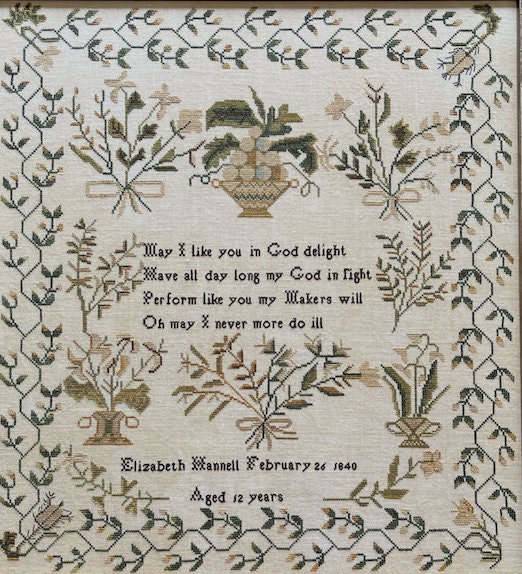 May I like you in God delight
Have all day long my God in sight
Perform like you my Makers will
Oh may I never more do ill
Elizabeth Hannell February 26 1840
Aged 12 years